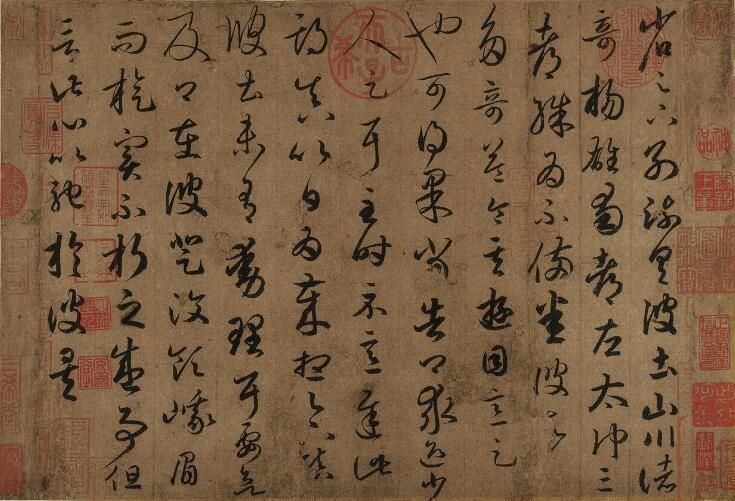 省足下別疏具彼土山川諸
奇楊雄蜀都左太沖三
都殊為不備悉彼故
多奇益令其遊目意足
也可得果當告卿求迎少
人足耳至時示意遲此
期真以日為歲想足下鎮
彼土未有動理耳要欲
及卿在彼登汶領峨眉
而旋實不朽之盛事但
言此心以馳於彼矣
古希天子